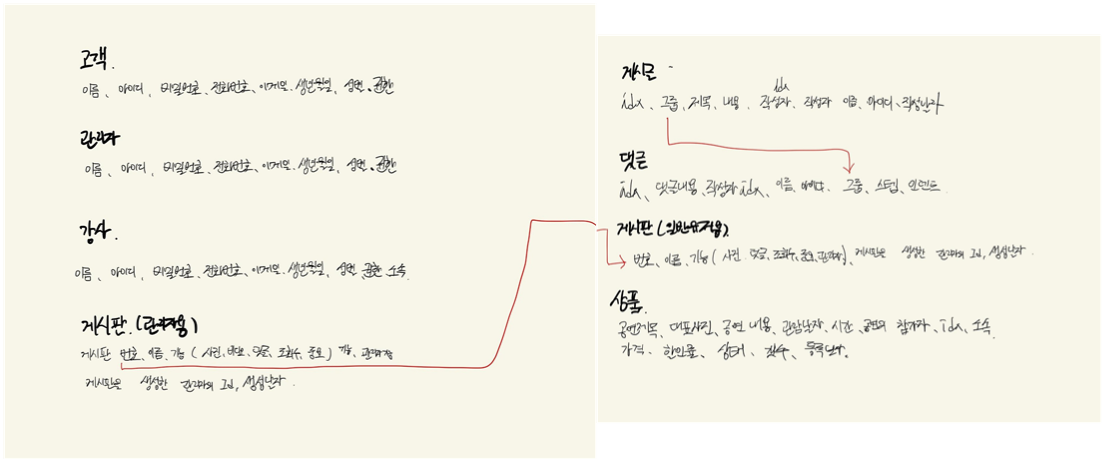 고객.
이름, 아이디, 비밀번호, 전화번호, 이메일, 생년월일, 성별, 권한
관리자
이름, 아이디, 비밀번호, 전화번호, 이메일, 생년월일, 성별, 권한
강사.
이름, 아이디, 비밀번호, 전화번호, 이메일, 생년월일, 성별, 권한 소속.
게시판 (관리자용)
게시판 번호, 이름, 기능 ( 사진, 댓글, 조회수, ) 기능,
게시판을 생성한 관리자의 생성날짜.
게시글 -
idx
idx, 그룹, 제목, 내용, 작성자, 작성자 이름, 아이디, 작성날자
댓글
idx, 댓글내용, 작성자 idx, 이름, 아이디, 그룹, 스텝, 인덴트.
게시판 (일반유저용)
번호, 이름, 기능 ( 사진, 댓글, 조회수, ), 게시판을 생성한 관리자의 생성날자.
상품.
공연제목, 대표사진, 공연 내용, 관람날자, 시간, 공연의 참가자, idx, 소속
가격, 할인률, 상태, 갯수, 등록날자.